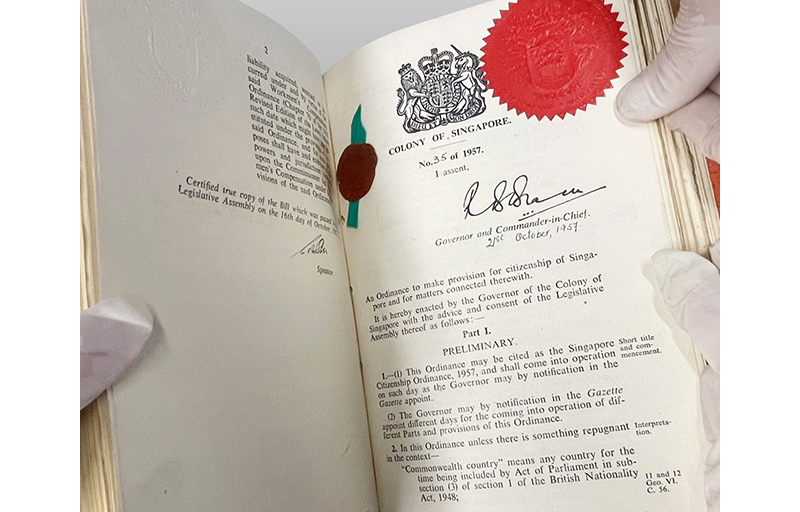 2
liability acquired,
curred under and by
said Workmen's
Ordinance (Chapter
Revised Edition of
such date which might
stituted under the
said Ordinance, and
poses shall have and
powers and jurisdiction
upon the Commissioner
men's Compensation under
visions of the said Ordinance
Certified true copy of the Bill which was passed
Legislative Assembly on the 16th day of October,
Speaker
COLONY OF SINGAPORE.
No. 35 of 1957.
I assent,
Governor and Commander-in-Chief.
21st October, 1957.
An Ordinance to make provision for citizenship of Singa-
pore and for matters connected therewith.
It is hereby enacted by the Governor of the Colony of
Singapore with the advice and consent of the Legislative
Assembly thereof as follows:—
Part I.
PRELIMINARY.
1.—(1) This Ordinance may be cited as the Singapore Short title
Citizenship Ordinance, 1957, and shall come into operation and com-
on such day as the Governor may by notification in the mencement.
Gazette appoint.
(2) The Governor may by notification in the Gazette
appoint different days for the coming into operation of dif-
ferent Parts and provisions of this Ordinance.
2. In this Ordinance unless there is something repugnant Interpreta-
in the context— tion.
"Commonwealth country" means any country for the
time being included by Act of Parliament in sub-
section (3) of section 1 of the British Nationality 11 and 12
Act, 1948; Geo. VI.
C. 56.